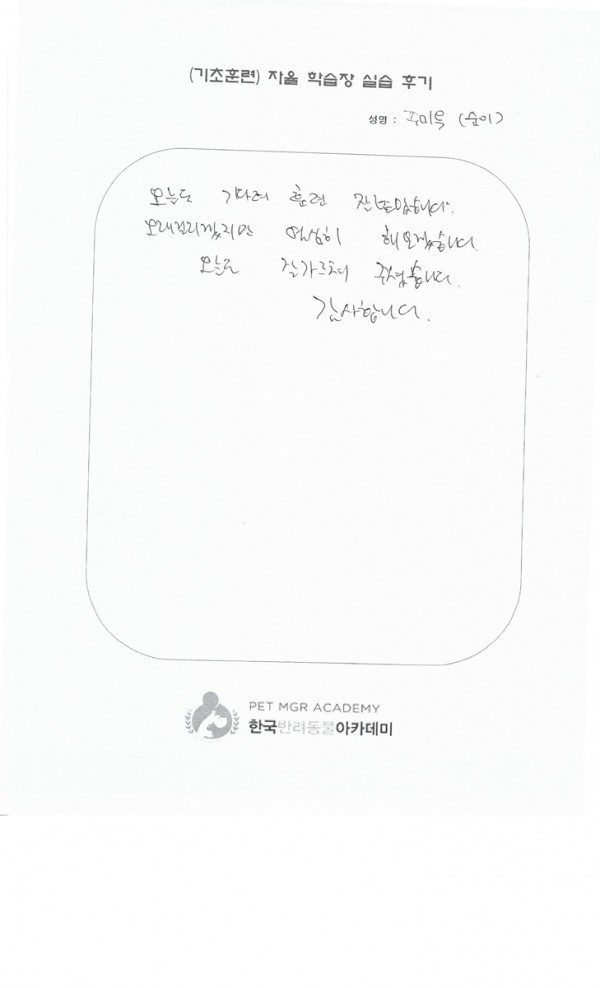 (기초훈련) 자율 학습장 실습 후기
성명 : 주미옥 (순이)
오늘도 기다려 훈련 잘 받았습니다.
오래걸리겠지만 열심히 해보겠습니다.
오늘도 잘가르쳐 주셨습니다.
감사합니다.
PET MGR ACADEMY
한국반려동물아카데미